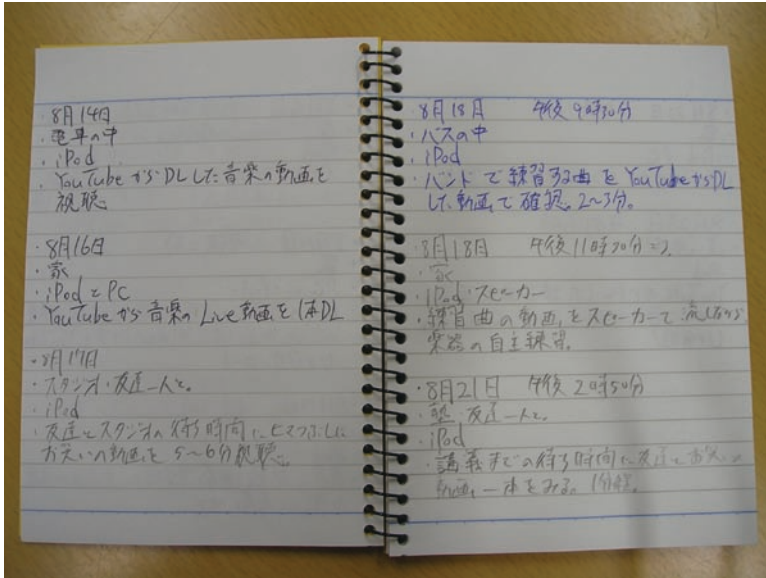 ・8月14日
・電車の中
・iPod
・YouTubeからDLした音楽の動画を
視聴。
・8月16日
・家
・iPodとPC
・YouTubeから音楽のLive動画を1本DL
・8月17日
・スタジオ・友達一人と。
・iPod
・友達とスタジオの待ち時間にヒマつぶしに
お笑いの動画を5〜6分視聴。
・8月18日 午後9時30分
・バスの中
・iPod
・バンドで練習する曲をYouTubeからDL
した動画で確認。2〜3分。
・8月18日 午後11時30分ごろ
・家
・iPod・スピーカー
・練習曲の動画をスピーカーで流しながら
楽器の自主練習。
・8月21日 午後2時50分
・塾・友達一人と。
・iPod
・講義までの待ち時間に友達とお笑いの
動画一本をみる。